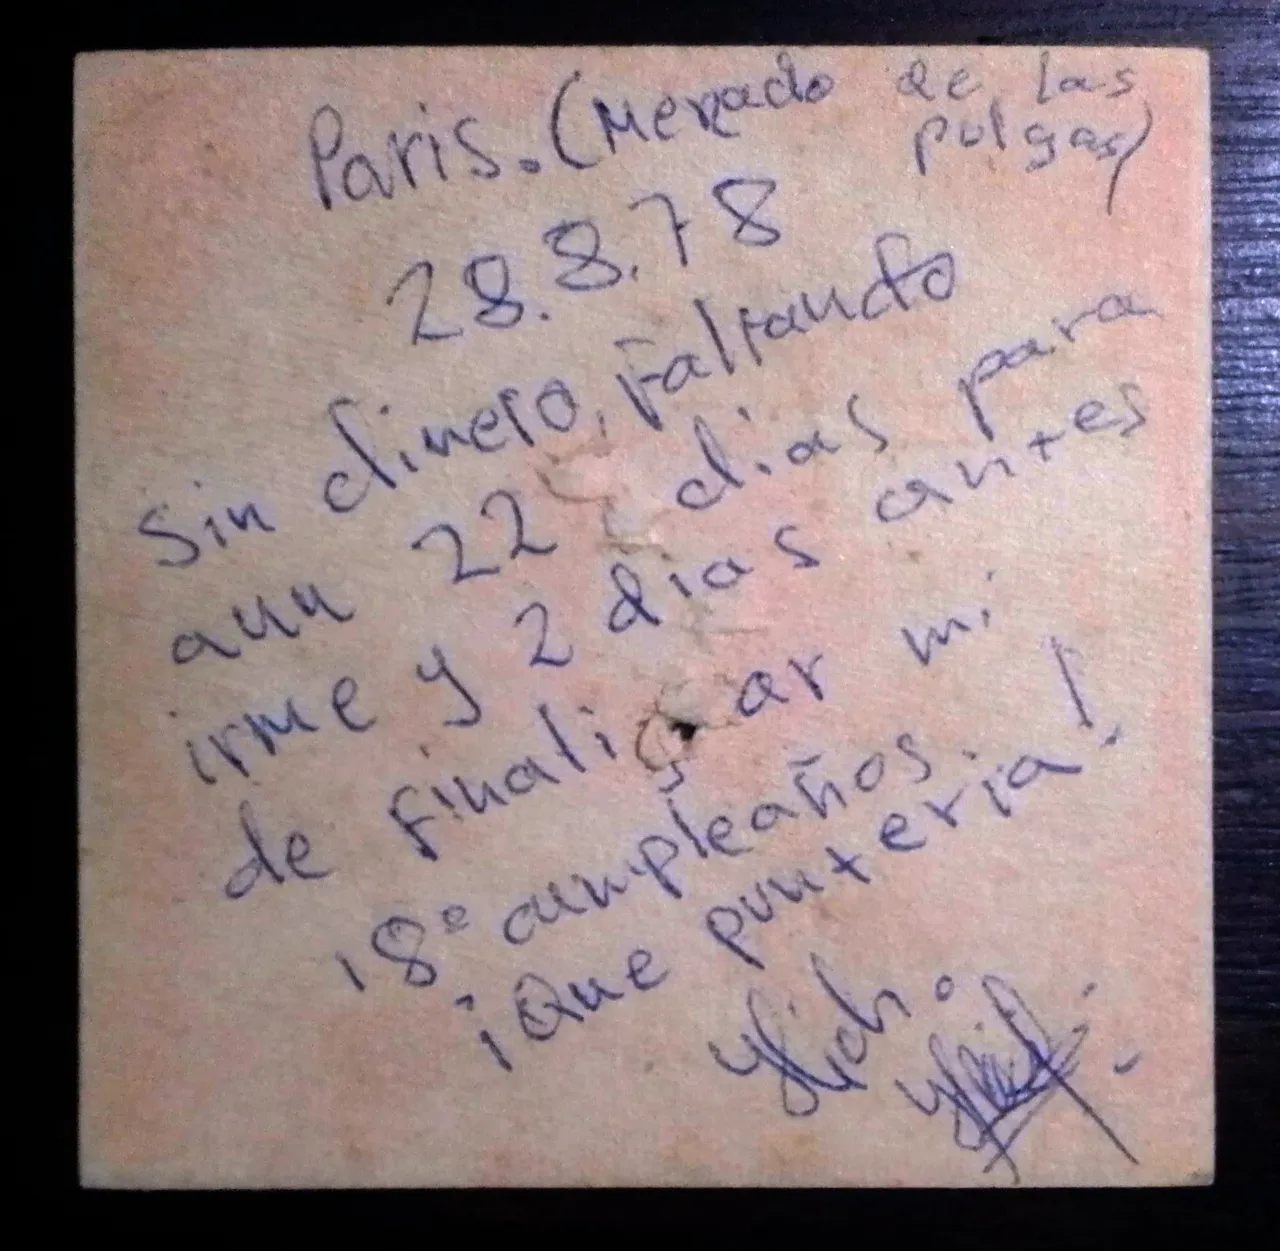 Paris. (Mercado de las
pulgas)
28.8.78
Sin dinero, faltando
aun 22 dias para
irme y 2 dias antes
de finalizar mi
18º cumpleaños.
¡Que punteria!